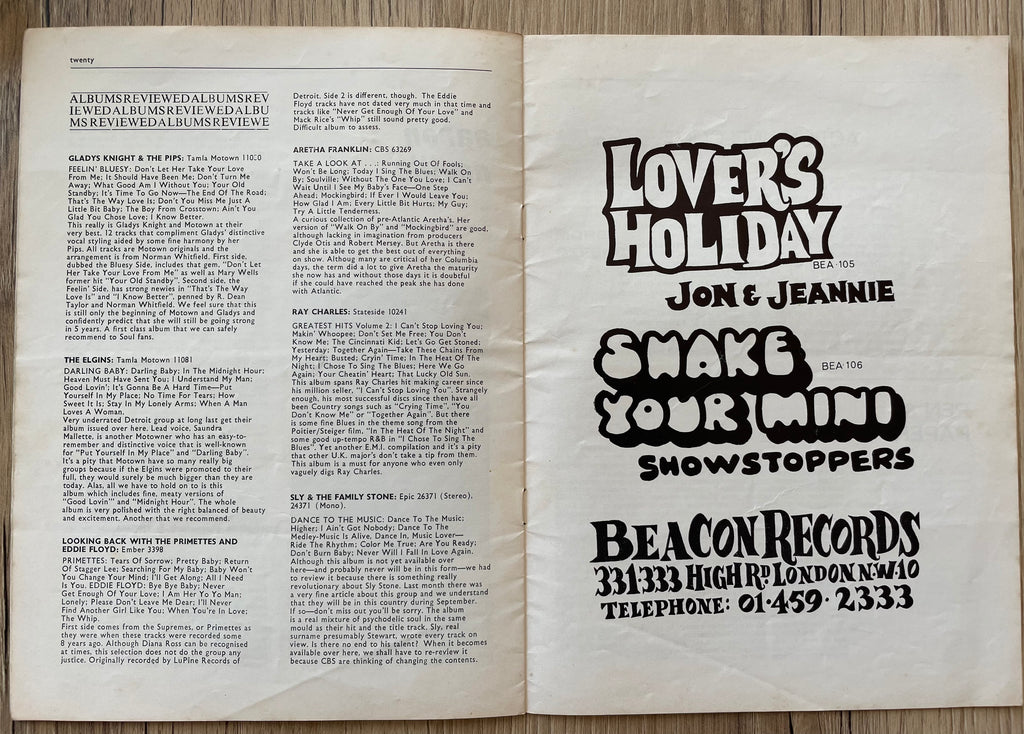 twenty
ALBUMSREVIEWEDALBUMSREV
IEWEDALBUMSREVIEWEDALBU
MSREVIEWEDALBUMSREVIEWE
GLADYS KNIGHT & THE PIPS: Tamla Motown
FEELIN' BLUESY: Don't Let Her Take Your Love
From Me; It Should Have Been Me; Don't Turn Me
Away; What Good Am I Without You; Your Old
Standby; It's Time To Go Now—The End Of The Road;
That's The Way Love Is; Don't You Miss Me Just A
Little Bit Baby; The Boy From Crosstown; Ain't You
Glad You Chose Love; I Know Better.
This really is Gladys Knight and Motown at their
very best. 12 tracks that compliment Gladys' distinctive
vocal styling aided by some fine harmony by her
Pips. All tracks are Motown originals and the
arrangement is from Norman Whitfield. First side,
dubbed the Bluesy Side, includes that gem, "Don't Let
Her Take Your Love From Me" as well as Mary Wells
former hit "Your Old Standby". Second side, the
Feelin' Side, has strong newies in "That's The Way
Love Is" and "I Know Better", penned by R. Dean
Taylor and Norman Whitfield. We feel sure that this
is still only the beginning of Motown and Gladys and
confidently predict that she will still be going strong
in 5 years. A first class album that we can safely
recommend to Soul fans.
THE ELGINS: Tamla Motown 11081
DARLING BABY: Darling Baby; In The Midnight Hour;
Heaven Must Have Sent You; I Understand My Man;
Good Lovin'; It's Gonna Be A Hard Time—Put
Yourself In My Place; No Time For Tears; How
Sweet It Is; Stay In My Lonely Arms; When A Man
Loves A Woman.
Very underrated Detroit group at long last get their
album issued over here. Lead voice, Saundra
Mallette, is another Motowner who has an easy-to-
remember and distinctive voice that is well-known
for "Put Yourself In My Place" and "Darling Baby".
It's a pity that Motown have so many really big
groups because if the Elgins were promoted to their
full, they would surely be much bigger than they are
today. Alas, all we have to hold on to is this
album which includes fine, meaty versions of
"Good Lovin'" and "Midnight Hour". The whole
album is very polished with the right balanced of beauty
and excitement. Another that we recommend.
LOOKING BACK WITH THE PRIMETTES AND
EDDIE FLOYD: Ember 3398
PRIMETTES: Tears Of Sorrow; Pretty Baby; Return
Of Stagger Lee; Searching For My Baby; Baby Won't
You Change Your Mind; I'll Get Along; All I Need
Is You. EDDIE FLOYD: Bye Bye Baby; Never
Get Enough Of Your Love; I Am Her Yo Yo Man;
Lonely; Please Don't Leave Me Dear; I'll Never
Find Another Girl Like You; When You're In Love;
The Whip.
First side comes from the Supremes, or Primettes as
they were when these tracks were recorded some
8 years ago. Although Diana Ross can be recognised
at times, this selection does not do the group any
justice. Originally recorded by LuPine Records of
Detroit. Side 2 is different, though. The Eddie
Floyd tracks have not dated very much in that time and
tracks like "Never Get Enough Of Your Love" and
Mack Rice's "Whip" still sound pretty good.
Difficult album to assess.
ARETHA FRANKLIN: CBS 63269
TAKE A LOOK AT . . .: Running Out Of Fools;
Won't Be Long; Today I Sing The Blues; Walk On
By; Soulville; Without The One You Love; I Can't
Wait Until I See My Baby's Face—One Step
Ahead; Mockingbird; If Ever I Would Leave You;
How Glad I Am; Every Little Bit Hurts; My Guy;
Try A Little Tenderness.
A curious collection of pre-Atlantic Aretha's. Her
version of "Walk On By" and "Mockingbird" are good,
although lacking in imagination from producers
Clyde Otis and Robert Mersey. But Aretha is there
and she is able to get the best out of everything
on show. Althoug many are critical of her Columbia
days, the term did a lot to give Aretha the maturity
she now has and without those days it is doubtful
if she could have reached the peak she has done
with Atlantic.
RAY CHARLES: Stateside 10241
GREATEST HITS Volume 2: I Can't Stop Loving You;
Makin' Whoopee; Don't Set Me Free; You Don't
Know Me; The Cincinnati Kid; Let's Go Get Stoned;
Yesterday; Together Again—Take These Chains From
My Heart; Busted; Cryin' Time; In The Heat Of The
Night; I Chose To Sing The Blues; Here We Go
Again; Your Cheatin' Heart; That Lucky Old Sun.
This album spans Ray Charles hit making career since
his million seller, "I Can't Stop Loving You". Strangely
enough, his most successful discs since then have all
been Country songs such as "Crying Time", "You
Don't Know Me" or "Together Again". But there is
some fine Blues in the theme song from the
Poitier/Steiger film, "In The Heat Of The Night" and
some good up-tempo R&B in "I Chose To Sing The
Blues". Yet another E.M.I. compilation and it's a pity
that other U.K. major's don't take a tip from them.
This album is a must for anyone who even only
vaguely digs Ray Charles.
SLY & THE FAMILY STONE: Epic 26371 (Stereo),
24371 (Mono).
DANCE TO THE MUSIC: Dance To The Music;
Higher; I Ain't Got Nobody; Dance To The
Medley-Music Is Alive, Dance In, Music Lover—
Ride The Rhythm; Color Me True; Are You Ready;
Don't Burn Baby; Never Will I Fall In Love Again.
Although this album is not yet available over
here—and probably never will be in this form—we had
to review it because there is something really
revolutionary about Sly Stone. Last month there was
a very fine article about this group and we understand
that they will be in this country during September.
If so—don't miss out you'll be sorry. The album
is a real mixture of psychodelic soul in the same
mould as their hit and the title track. Sly, real
surname presumably Stewart, wrote every track on
view. Is there no end to his talent? When it becomes
available over here, we shall have to re-review it
because CBS are thinking of changing the contents.
LOVER'S
HOLIDAY
BEA·105
JON & JEANNIE
SHAKE
BEA 106
YOUR MINI
SHOWSTOPPERS
BEACON RECORDS
331·333 HIGH RD. LONDON N·W·10
TELEPHONE: 01·459·2333